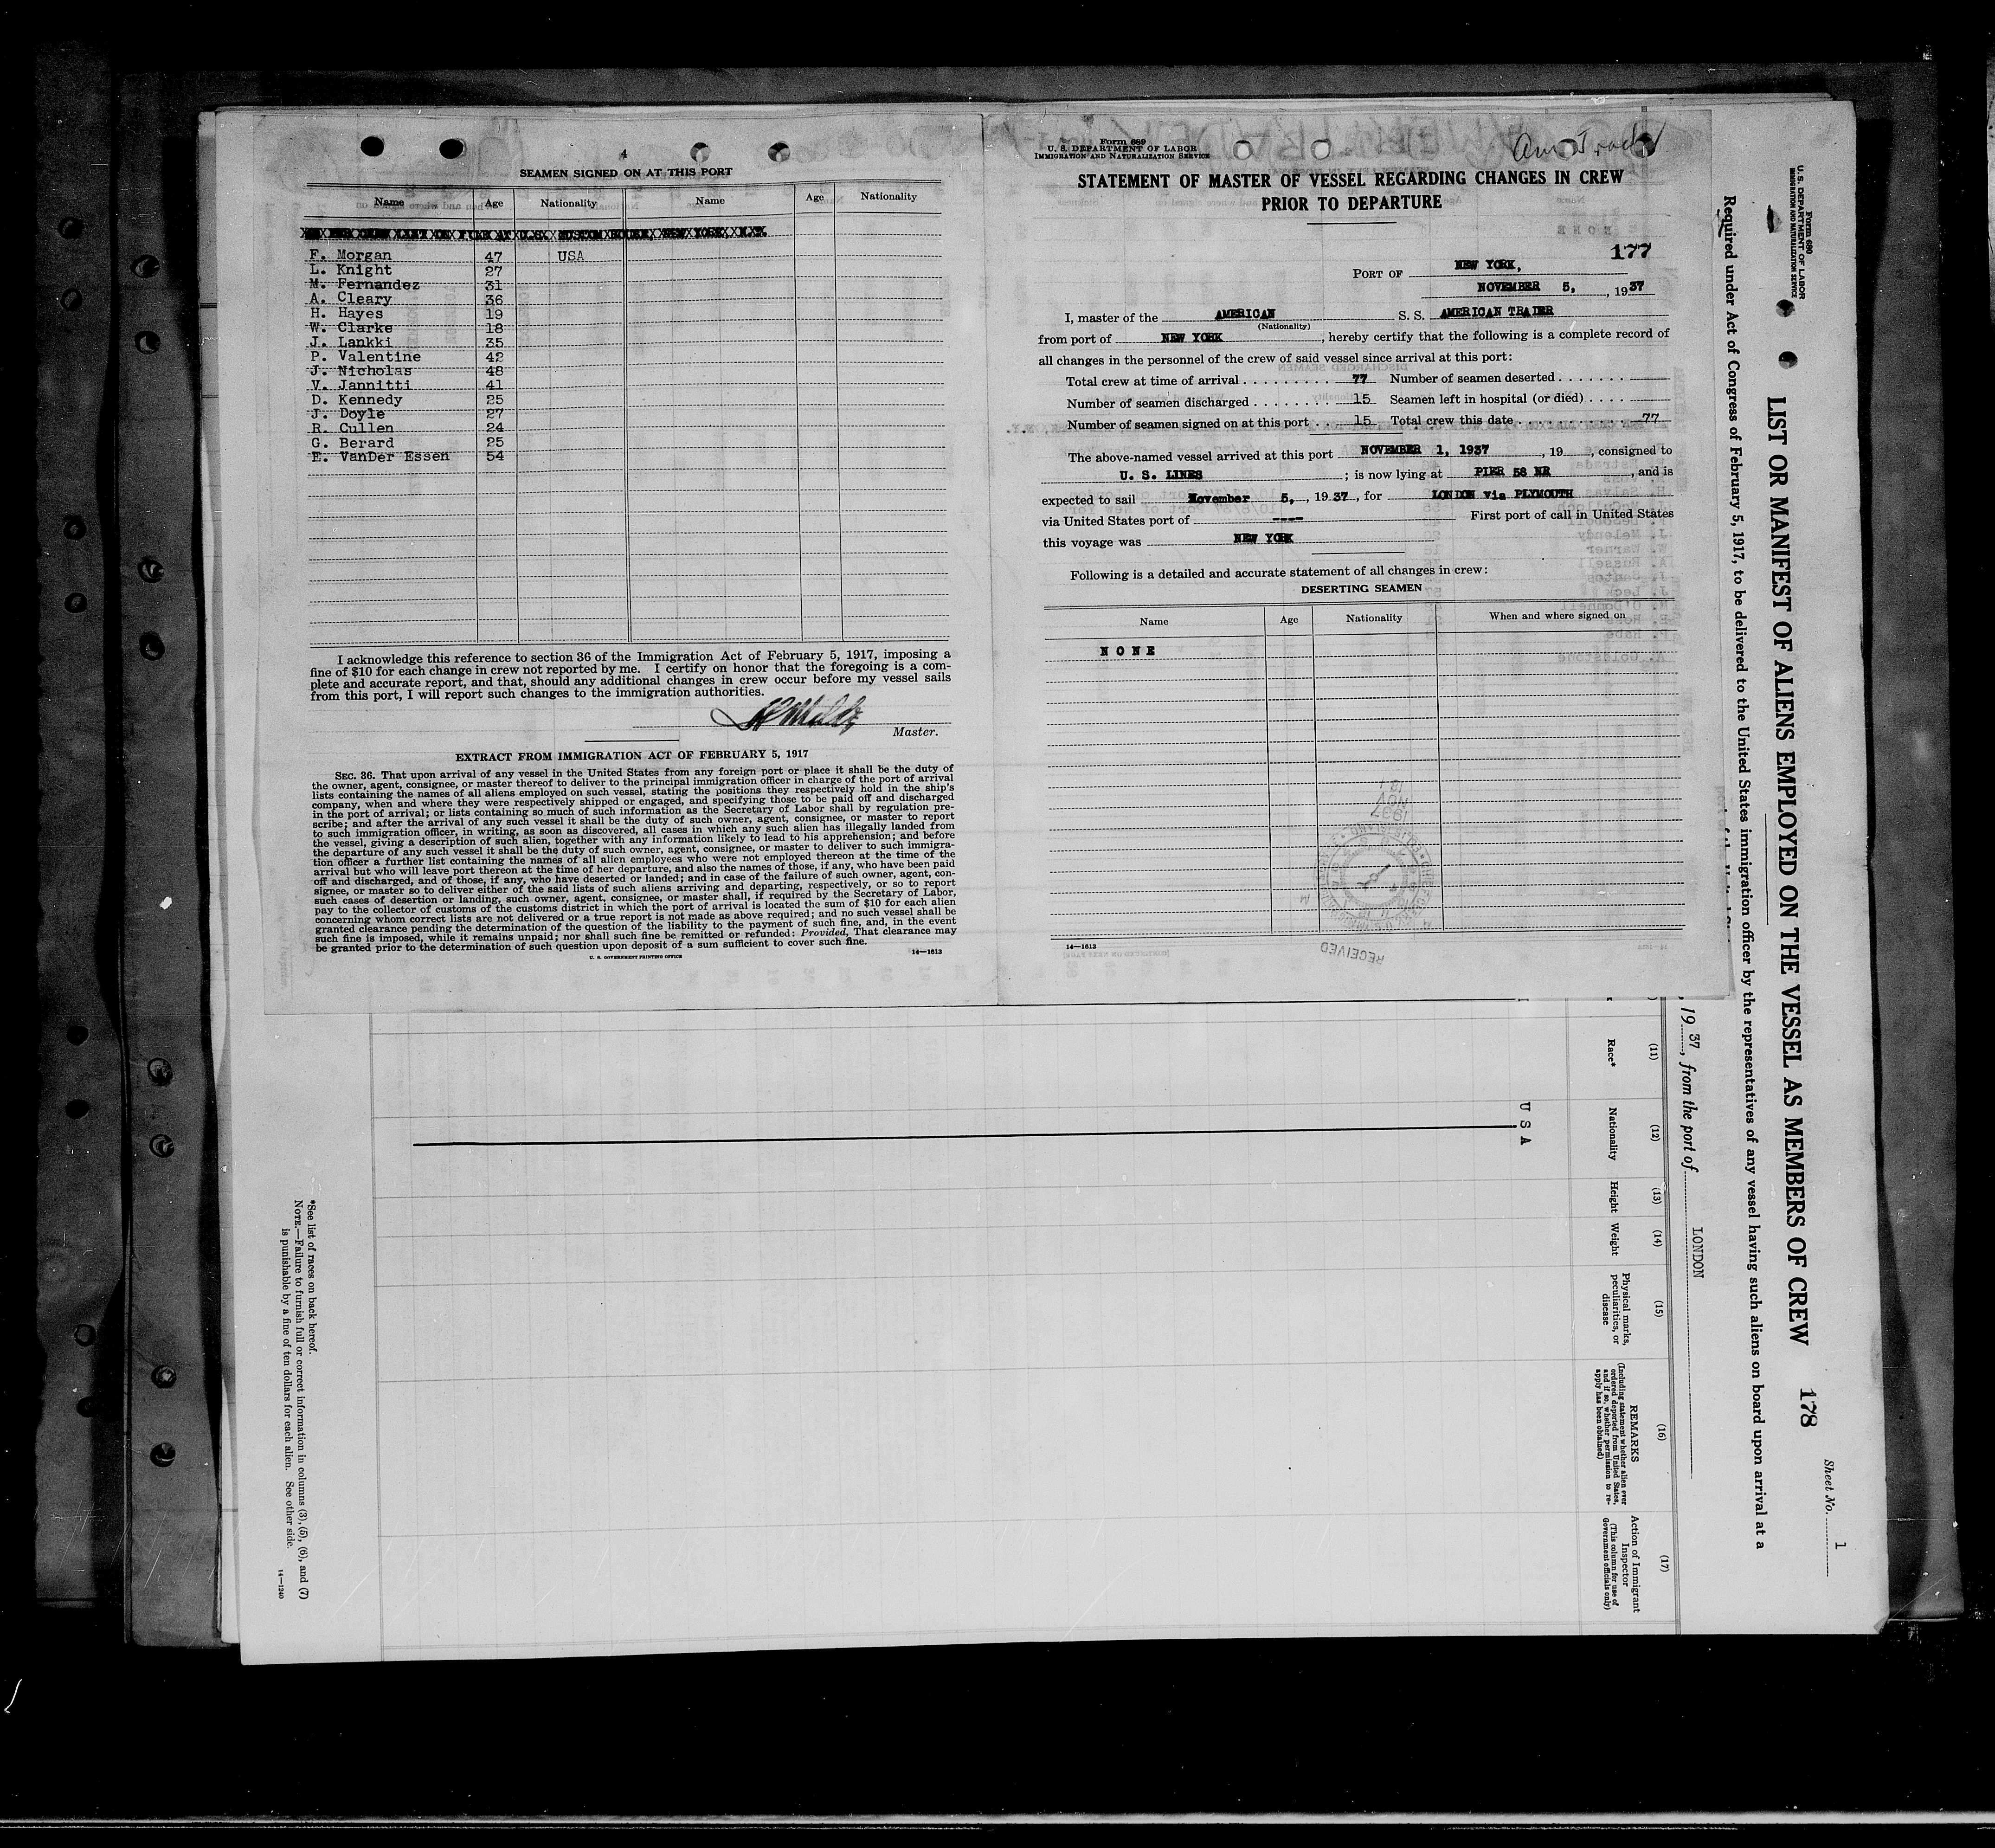 4
SEAMEN SIGNED ON AT THIS PORT
Name Age Nationality Name Age Nationality
F. Morgan 47 USA
L. Knight 27
M. Fernandez 31
A. Cleary 36
H. Hayes 19
W. Clarke 18
J. Lankki 35
P. Valentine 42
J. Nicholas 48
V. Jannitti 41
D. Kennedy 25
J. Doyle 27
R. Cullen 24
G. Berard 25
E. VanDer Essen 54
I acknowledge this reference to section 36 of the Immigration Act of February 5, 1917, imposing a
fine of $10 for each change in crew not reported by me. I certify on honor that the foregoing is a com-
plete and accurate report, and that, should any additional changes in crew occur before my vessel sails
from this port, I will report such changes to the immigration authorities.
Master.
EXTRACT FROM IMMIGRATION ACT OF FEBRUARY 5, 1917
SEC. 36. That upon arrival of any vessel in the United States from any foreign port or place it shall be the duty of
the owner, agent, consignee, or master thereof to deliver to the principal immigration officer in charge of the port of arrival
lists containing the names of all aliens employed on such vessel, stating the positions they respectively hold in the ship's
company, when and where they were respectively shipped or engaged, and specifying those to be paid off and discharged
in the port of arrival; or lists containing so much of such information as the Secretary of Labor shall by regulation pre-
scribe; and after the arrival of any such vessel it shall be the duty of such owner, agent, consignee, or master to report
to such immigration officer, in writing, as soon as discovered, all cases in which any such alien has illegally landed from
the vessel, giving a description of such alien, together with any information likely to lead to his apprehension; and before
the departure of any such vessel it shall be the duty of such owner, agent, consignee, or master to deliver to such immigra-
tion officer a further list containing the names of all alien employees who were not employed thereon at the time of the
arrival but who will leave port thereon at the time of her departure, and also the names of those, if any, who have been paid
off and discharged, and of those, if any, who have deserted or landed; and in case of the failure of such owner, agent, con-
signee, or master so to deliver either of the said lists of such aliens arriving and departing, respectively, or so to report
such cases of desertion or landing, such owner, agent, consignee, or master shall, if required by the Secretary of Labor,
pay to the collector of customs of the customs district in which the port of arrival is located the sum of $10 for each alien
concerning whom correct lists are not delivered or a true report is not made as above required; and no such vessel shall be
granted clearance pending the determination of the question of the liability to the payment of such fine, and, in the event
such fine is imposed, while it remains unpaid; nor shall such fine be remitted or refunded: Provided, That clearance may
be granted prior to the determination of such question upon deposit of a sum sufficient to cover such fine.
U. S. GOVERNMENT PRINTING OFFICE 14—1613
Form 689
U. S. DEPARTMENT OF LABOR
IMMIGRATION AND NATURALIZATION SERVICE
Am Trader
STATEMENT OF MASTER OF VESSEL REGARDING CHANGES IN CREW
PRIOR TO DEPARTURE
177
PORT OF NEW YORK,
NOVEMBER 5, , 1937
I, master of the AMERICAN S. S. AMERICAN TRADER
(Nationality)
from port of NEW YORK, hereby certify that the following is a complete record of
all changes in the personnel of the crew of said vessel since arrival at this port:
Total crew at time of arrival 77 Number of seamen deserted
Number of seamen discharged 15 Seamen left in hospital (or died)
Number of seamen signed on at this port 15 Total crew this date 77
The above-named vessel arrived at this port NOVEMBER 1, 1937, 19 , consigned to
U. S. LINES ; is now lying at PIER 58 NR , and is
expected to sail November 5, , 1937, for LONDON via PLYMOUTH
via United States port of ---- First port of call in United States
this voyage was NEW YORK
Following is a detailed and accurate statement of all changes in crew:
DESERTING SEAMEN
Name Age Nationality When and where signed on
NONE
1937
NOV
RECEIVED
14—1613
Form 680
U. S. DEPARTMENT OF LABOR
IMMIGRATION AND NATURALIZATION SERVICE
LIST OR MANIFEST OF ALIENS EMPLOYED ON THE VESSEL AS MEMBERS OF CREW
178
Sheet No. 1
Required under Act of Congress of February 5, 1917, to be delivered to the United States immigration officer by the representatives of any vessel having such aliens on board upon arrival at a
, 1937, from the port of LONDON
(11) (12) (13) (14) (15) (16) (17)
Race*
Nationality
Height
Weight
Physical marks, peculiarities, or disease
REMARKS
(Including statement whether alien ever ordered deported from United States, and if so, whether permission to re-apply has been obtained)
Action of Immigrant Inspector
(This column for use of Government officials only)
USA
*See list of races on back hereof.
NOTE.—Failure to furnish full or correct information in columns (3), (5), (6), and (7)
is punishable by a fine of ten dollars for each alien. See other side.
14—1240